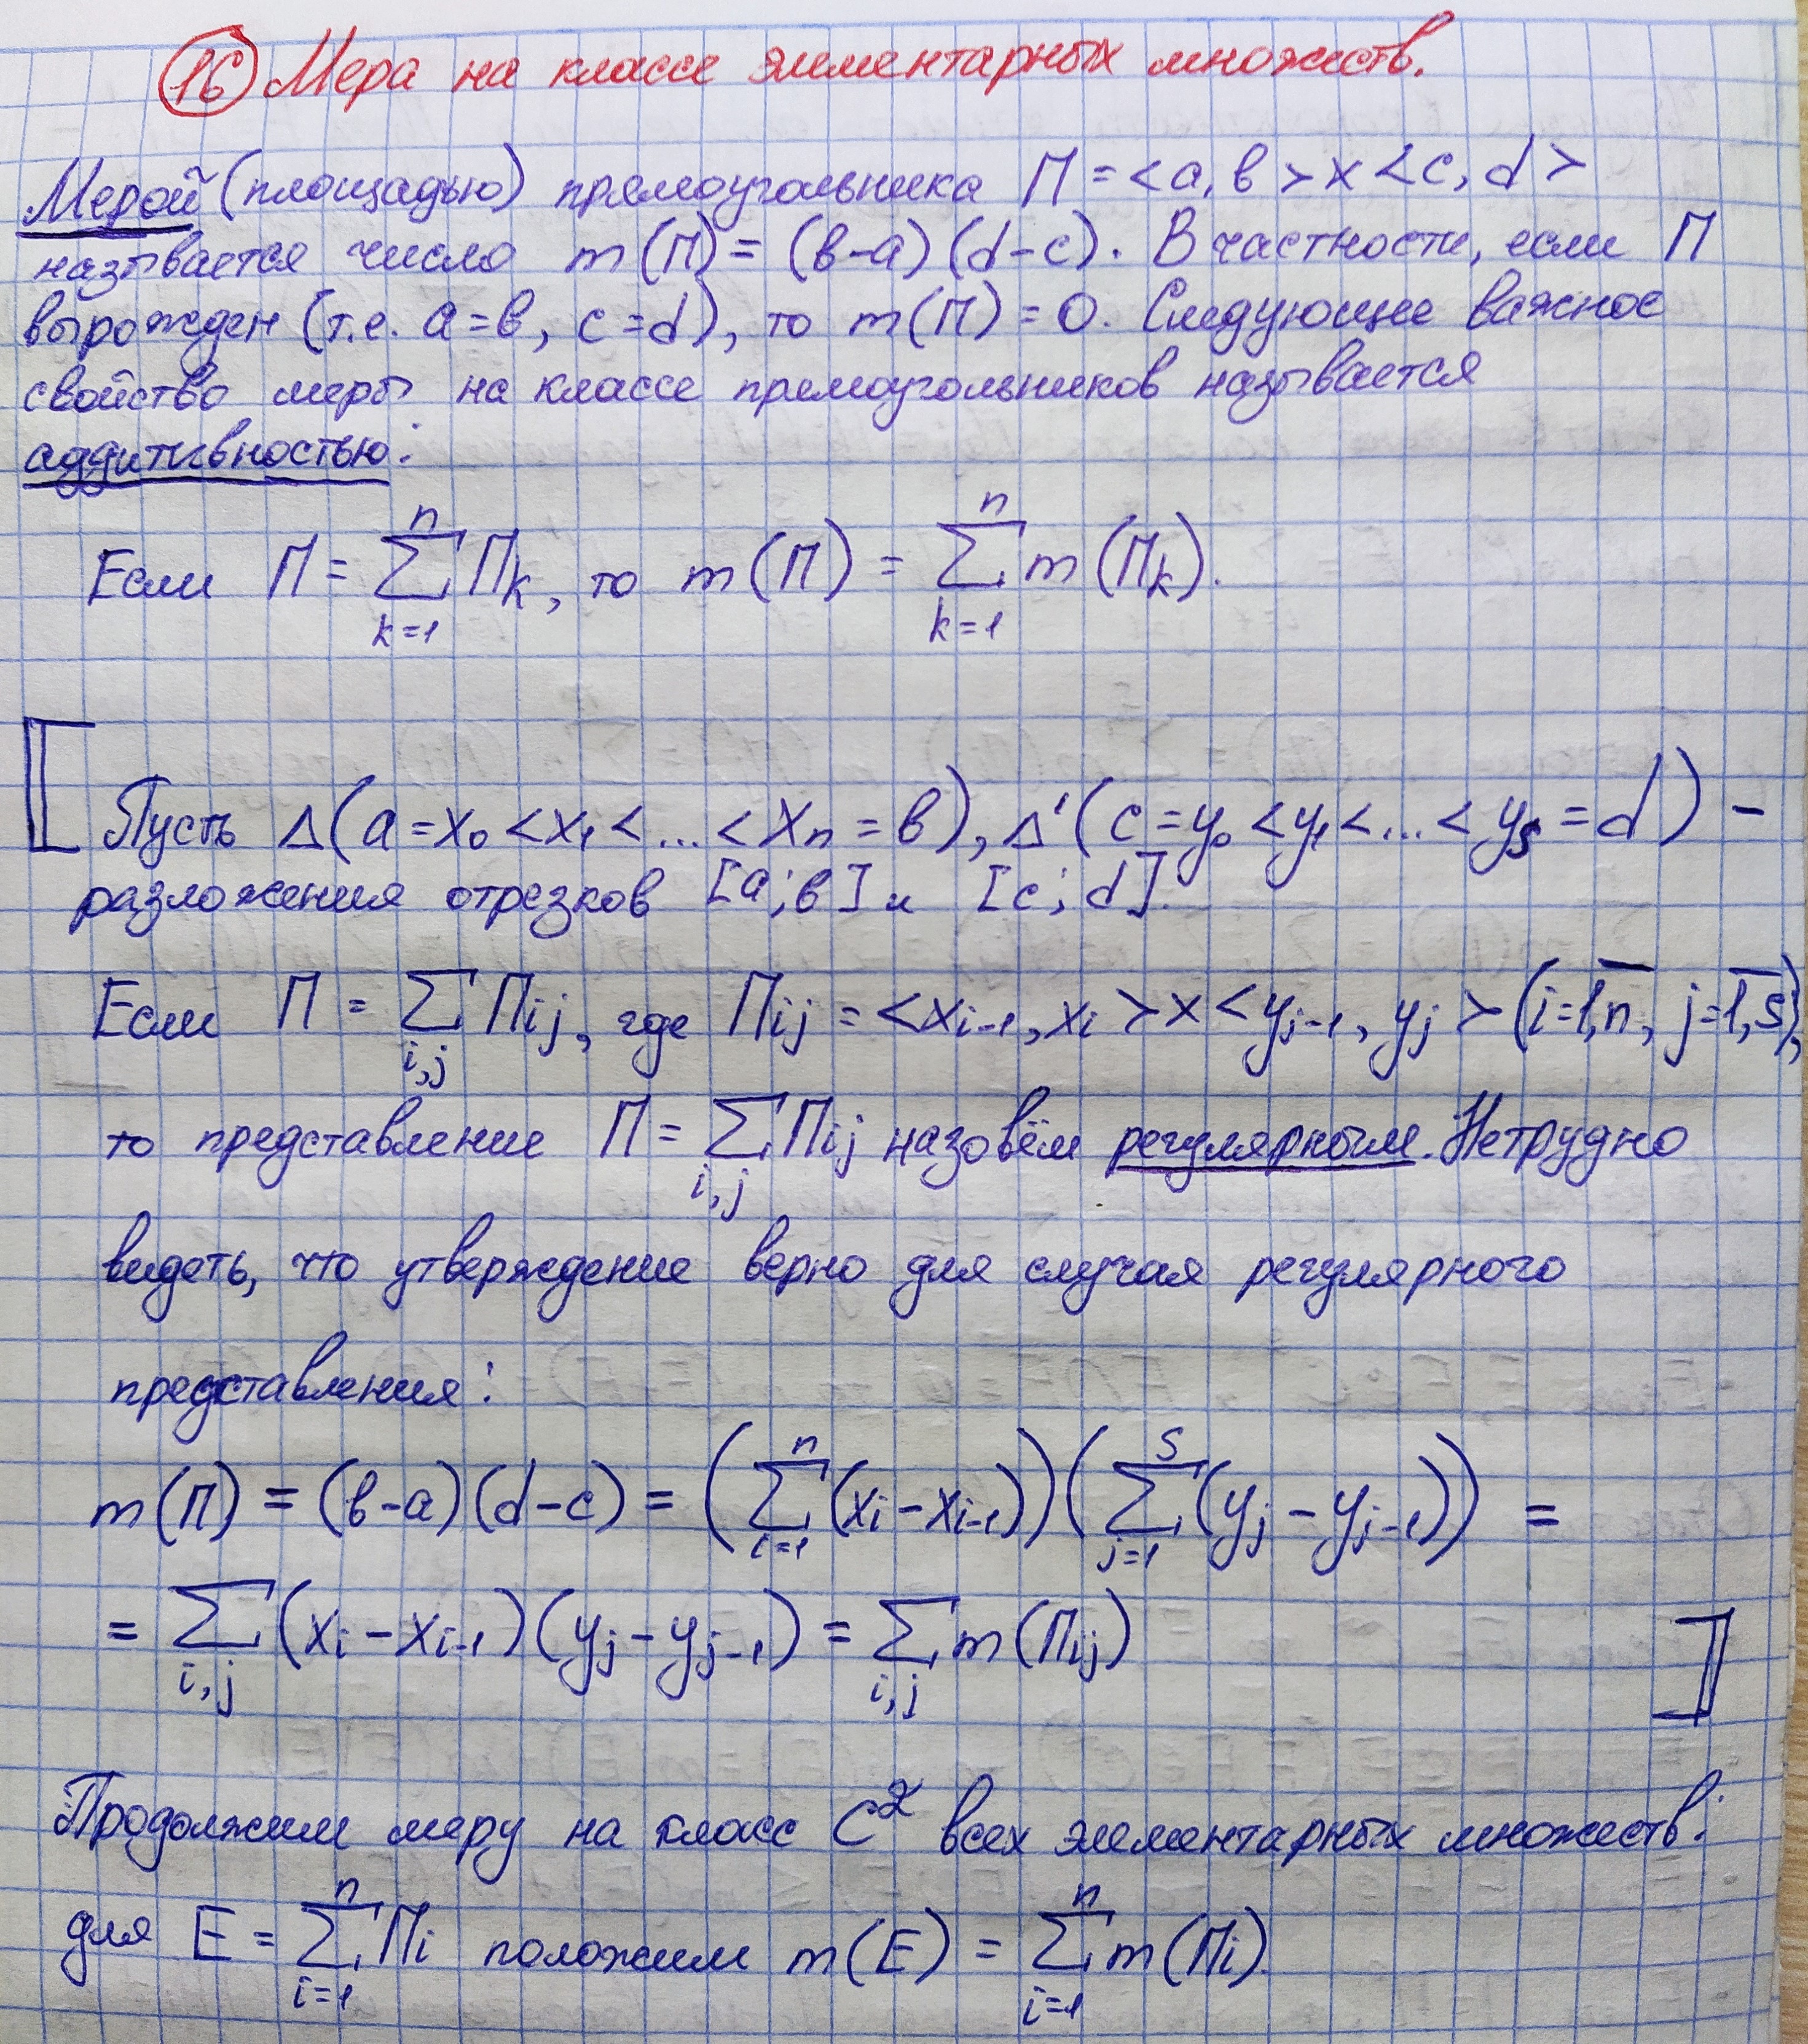 16 Мера на классе элементарных множеств.
Мерой (площадью) прямоугольника П = <a, b> x <c, d>
называется число m(П) = (b-a)(d-c). В частности, если П
вырожден (т.е. a=b, c=d), то m(П) = 0. Следующее важное
свойство меры на классе прямоугольников называется
аддитивностью:
Если П = ∑_{k=1}^{n} П_k, то m(П) = ∑_{k=1}^{n} m(П_k).
Пусть Δ(a=x₀<x₁<...<xₙ=b), Δ'(c=y₀<y₁<...<y_s=d) –
разложения отрезков [a;b] и [c;d].
Если П = ∑_{i,j} П_{ij}, где П_{ij} = <x_{i-1}, x_i> x <y_{j-1}, y_j> (i=\overline{1,n}, j=\overline{1,s}),
то представление П = ∑_{i,j} П_{ij} назовём регулярным. Нетрудно
видеть, что утверждение верно для случая регулярного
представления:
m(П) = (b-a)(d-c) = (∑_{i=1}^{n} (x_i - x_{i-1}))(∑_{j=1}^{s} (y_j - y_{j-1})) =
= ∑_{i,j} (x_i - x_{i-1})(y_j - y_{j-1}) = ∑_{i,j} m(П_{ij})
Продолжим меру на класс C² всех элементарных множеств:
для E = ∑_{i=1}^{n} П_i положим m(E) = ∑_{i=1}^{n} m(П_i).